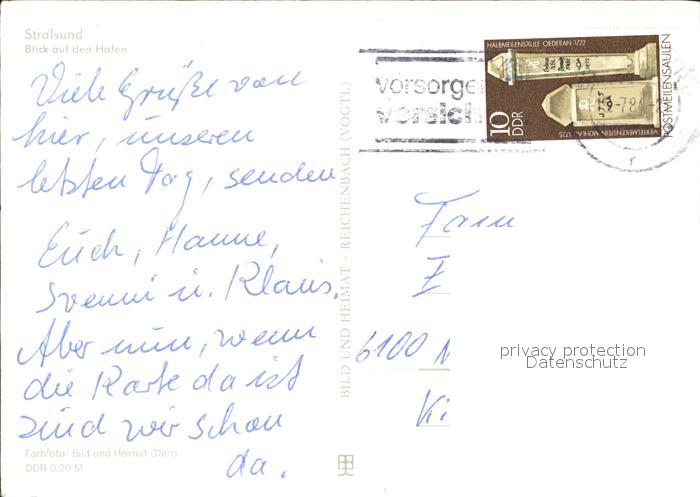 Stralsund
Blick auf den Hafen
Viele Grüße von
hier, unseren
letzten Tag, senden
Euch, Hanne,
Svenni u. Klaus.
Aber nun, wenn
die Karte da ist
sind wir schon
da.
Farbfoto: Bild und Heimat (Darr)
DDR 0,20 M
BILD UND HEIMAT · REICHENBACH (VOGTL)
vorsorge
versich
HALBMEILENSÄULE OEDERAN 1722
10
DDR
VIERTELMEILENSTEIN MOHLAU 1725
POSTMEILENSÄULEN
Fam
6100 M
Ki
privacy protection
Datenschutz